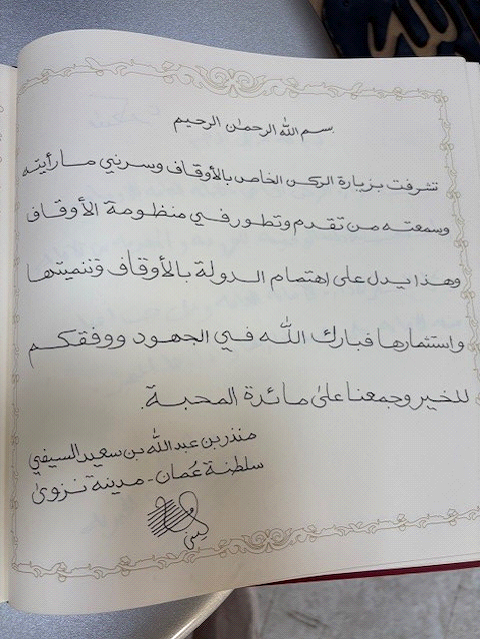 بسم الله الرحمن الرحيم
تشرفت بزيارة الركن الخاص بالأوقاف وسرني ما رأيته
وسمعته من تقدم وتطور في منظومة الأوقاف
وهذا يدل على اهتمام الدولة بالأوقاف وتنميتها
واستثمارها فبارك الله في الجهود ووفقكم
للخير وجمعنا على مائدة المحبة.
منذر بن عبد الله بن سعيد السيفي
سلطنة عُمان - مدينة نزوى